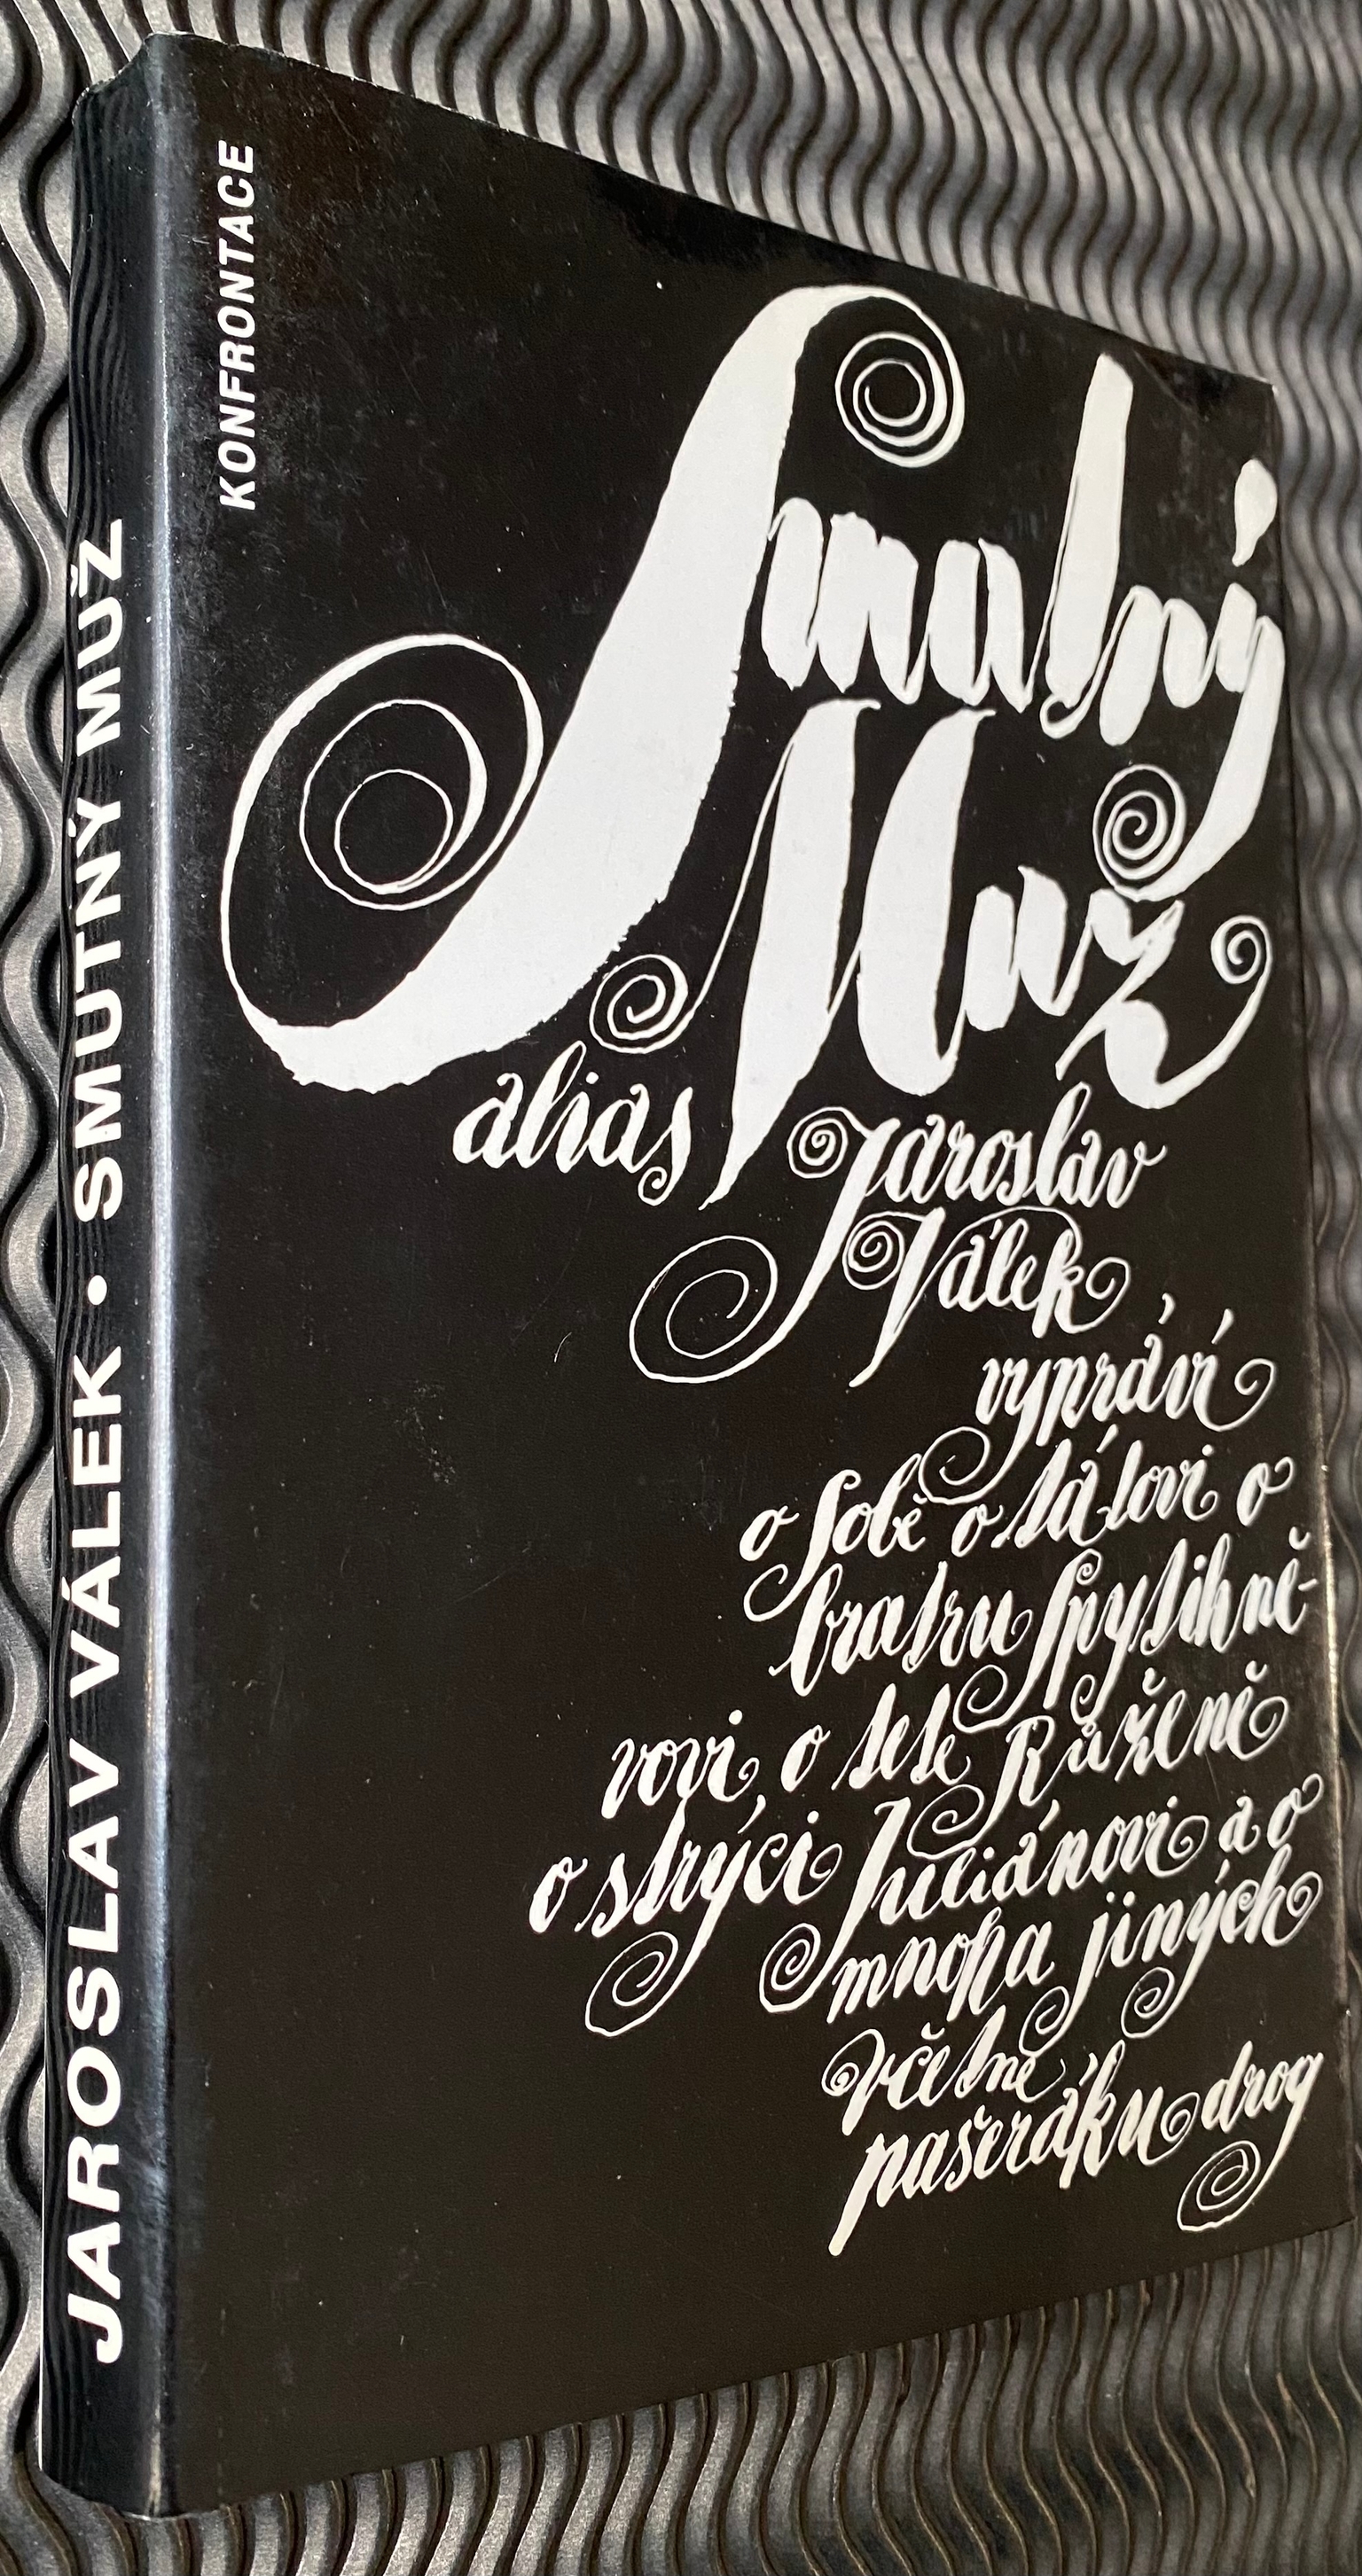 JAROSLAV VÁLEK • SMUTNÝ MUŽ
KONFRONTACE
Smutný
Muž
alias Jaroslav
Válek
vypráví
o sobě o tátovi o
bratru Spytihně-
vovi, o tetě Růženě
o strýci Juliánovi a o
mnoha jiných
včetně
pašeráků drog